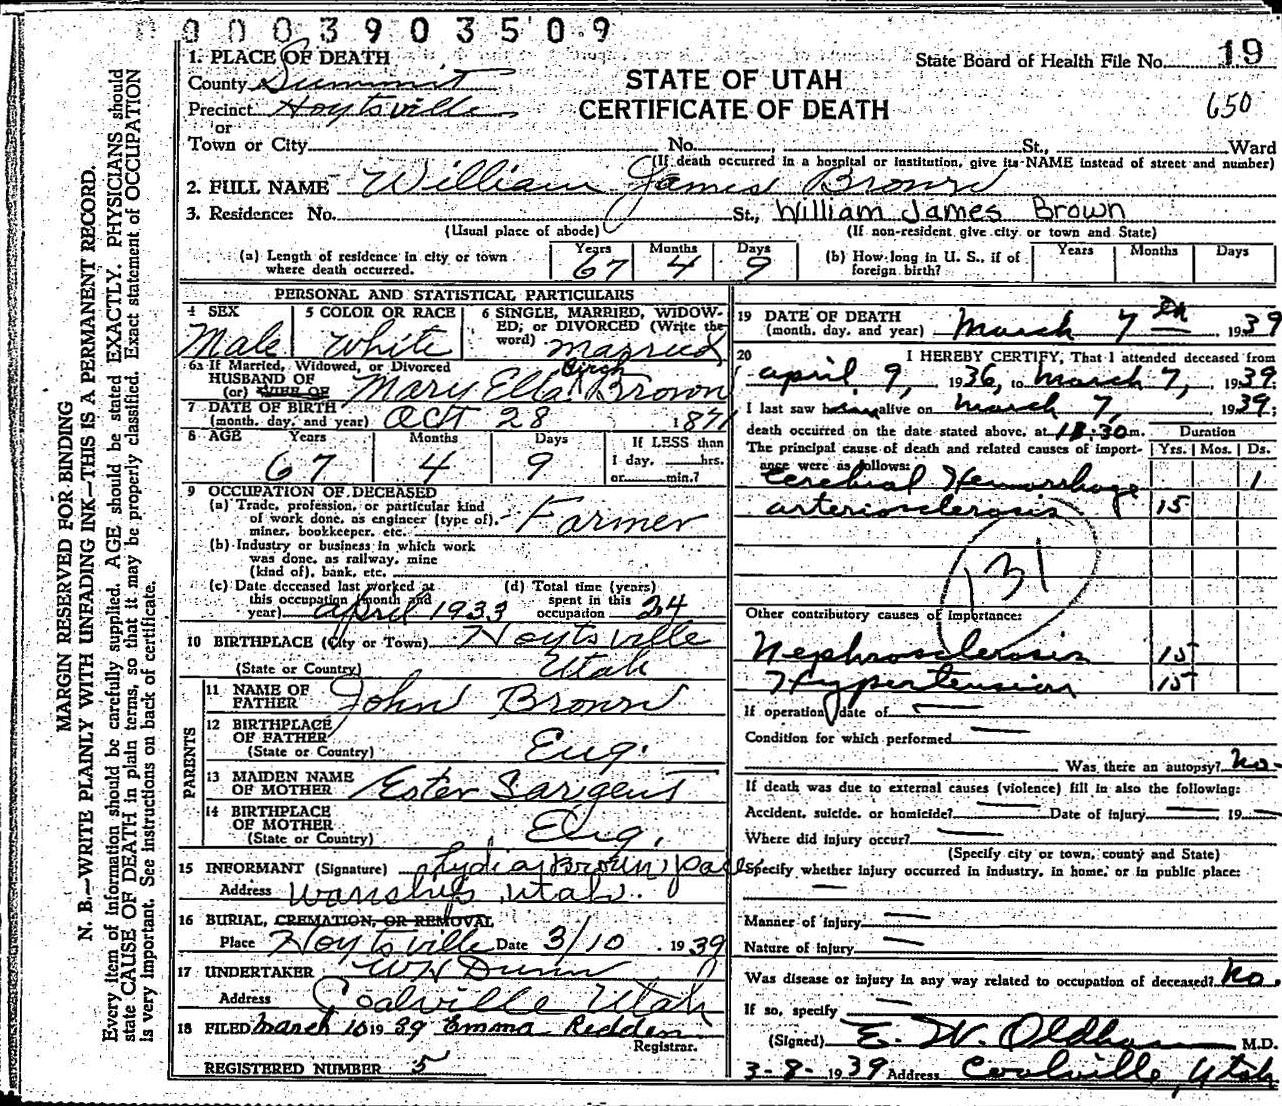 0003903509
1. PLACE OF DEATH
State Board of Health File No. 19
County Summit
STATE OF UTAH
Precinct Hoytsville
CERTIFICATE OF DEATH
650
or
Town or City No. St., Ward
(If death occurred in a hospital or institution, give its NAME instead of street and number)
2. FULL NAME William James Brown
3. Residence: No. St., William James Brown
(Usual place of abode) (If non-resident give city or town and State)
(a) Length of residence in city or town where death occurred. Years 67 Months 4 Days 9
(b) How long in U. S., if of foreign birth? Years Months Days
PERSONAL AND STATISTICAL PARTICULARS
4 SEX Male
5 COLOR OR RACE White
6 SINGLE, MARRIED, WIDOWED, or DIVORCED (Write the word) Married
6a If Married, Widowed, or Divorced
HUSBAND OF
(or) WIFE OF Mary Ella Birch Brown
7 DATE OF BIRTH
(month, day, and year) Oct 28 1871
8 AGE Years 67 Months 4 Days 9
If LESS than
1 day, hrs.
or min.?
9 OCCUPATION OF DECEASED
(a) Trade, profession, or particular kind
of work done, as engineer (type of),
miner, bookkeeper, etc. Farmer
(b) Industry or business in which work
was done, as railway, mine
(kind of), bank, etc.
(c) Date deceased last worked at
this occupation (month and
year) April 1933
(d) Total time (years)
spent in this
occupation 34
10 BIRTHPLACE (City or Town) Hoytsville
(State or Country) Utah
PARENTS
11 NAME OF
FATHER John Brown
12 BIRTHPLACE
OF FATHER
(State or Country) Eng.
13 MAIDEN NAME
OF MOTHER Ester Sargent
14 BIRTHPLACE
OF MOTHER
(State or Country) Eng.
15 INFORMANT (Signature) Lydia Brown Pace
Address Wanship, Utah.
16 BURIAL, CREMATION, OR REMOVAL
Place Hoytsville Date 3/10 1939
17 UNDERTAKER W H Dunn
Address Coalville Utah
18 FILED March 10 1939 Emma Redden
Registrar.
REGISTERED NUMBER 5
19 DATE OF DEATH
(month, day, and year) March 7th 1939
20 I HEREBY CERTIFY, That I attended deceased from
April 9, 1936, to March 7, 1939.
I last saw him alive on March 7, 1939;
death occurred on the date stated above, at 11:30 m.
Duration
The principal cause of death and related causes of importance were as follows: Yrs. Mos. Ds.
Cerebral Hemorrhage 1
arteriosclerosis 15
131
Other contributory causes of importance:
Nephrosclerosis 15
Hypertension 15
If operation, date of
Condition for which performed
Was there an autopsy? No
If death was due to external causes (violence) fill in also the following:
Accident, suicide, or homicide? Date of injury 19
Where did injury occur?
(Specify city or town, county and State)
Specify whether injury occurred in industry, in home, or in public place:
Manner of injury
Nature of injury
Was disease or injury in any way related to occupation of deceased? No.
If so, specify
(Signed) E. W. Oldham M.D.
3-8-1939 Address Coalville, Utah
MARGIN RESERVED FOR BINDING
N. B.—WRITE PLAINLY WITH UNFADING INK—THIS IS A PERMANENT RECORD.
Every item of information should be carefully supplied. AGE should be stated EXACTLY. PHYSICIANS should
state CAUSE OF DEATH in plain terms, so that it may be properly classified. Exact statement of OCCUPATION
is very important. See instructions on back of certificate.